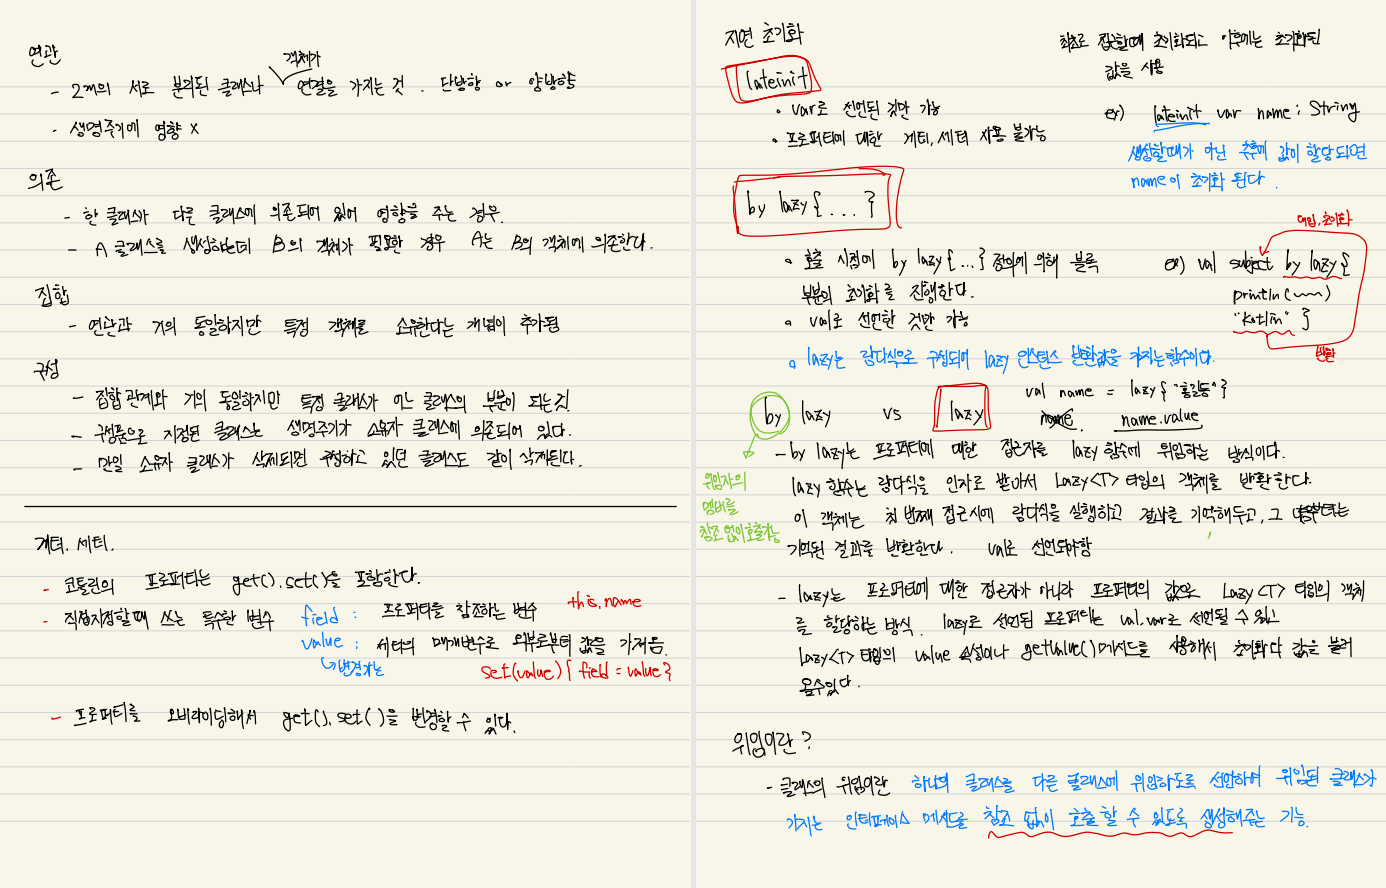 연관
객체가
- 2개의 서로 분리된 클래스나 연결을 가지는 것. 단방향 or 양방향
- 생명주기에 영향 X
의존
- 한 클래스가 다른 클래스에 의존되어 있어 영향을 주는 경우.
- A 클래스를 생성하는데 B의 객체가 필요한 경우 A는 B의 객체에 의존한다.
집합
- 연관과 거의 동일하지만 특정 객체를 소유한다는 개념이 추가됨
구성
- 집합 관계와 거의 동일하지만 특정 클래스가 어느 클래스의 부분이 되는것.
- 구성품으로 지정된 클래스는 생명주기가 소유자 클래스에 의존되어 있다.
- 만일 소유자 클래스가 삭제되면 구성하고 있던 클래스도 같이 삭제된다.
게터. 세터.
- 코틀린의 프로퍼티는 get().set()을 포함한다.
- 직접지정할때 쓰는 특수한 변수 field : 프로퍼티를 참조하는 변수 this.name
value : 세터의 매개변수로 외부로부터 값을 가져옴.
변경가능
set(value) { field = value }
- 프로퍼티를 오버라이딩해서 get(). set()을 변경할 수 있다.
지연 초기화
최초로 접근할때 초기화되고 이후에는 초기화된
값을 사용
lateinit
• var로 선언된 것만 가능
• 프로퍼티에 대한 게터, 세터 사용 불가능
ex) lateinit var name : String
생성할때가 아닌 추후에 값이 할당되면
name이 초기화 된다.
by lazy { ... }
• 호출 시점에 by lazy { ... } 정의에 의해 블록
부분의 초기화를 진행한다.
• val로 선언한 것만 가능
• lazy는 람다식으로 구성되어 lazy 인스턴스 반환값을 가지는 함수이다.
대입, 초기화
ex) val subject by lazy {
println(~~)
"Kotlin" }
반환
by lazy vs lazy
val name = lazy { "홍길동" }
name. name.value
- by lazy는 프로퍼티에 대한 접근자를 lazy 함수에 위임하는 방식이다.
lazy 함수는 람다식을 인자로 받아서 Lazy<T> 타입의 객체를 반환한다.
이 객체는 첫 번째 접근시에 람다식을 실행하고 결과를 기억해두고, 그 다음부터는
기억된 결과를 반환한다. val로 선언되야함
위임자의
멤버를
참조 없이 호출가능
- lazy는 프로퍼티에 대한 접근자가 아니라 프로퍼티의 값으로 Lazy<T> 타입의 객체
를 할당하는 방식. lazy로 선언된 프로퍼티는 val.var로 선언될 수 있고
Lazy<T> 타입의 value 속성이나 getValue() 메서드를 사용해서 초기화된 값을 불러
올수있다.
위임이란?
- 클래스의 위임이란 하나의 클래스를 다른 클래스에 위임하도록 선언하여 위임된 클래스가
가지는 인터페이스 메서드를 참조 없이 호출할 수 있도록 생성해주는 기능.